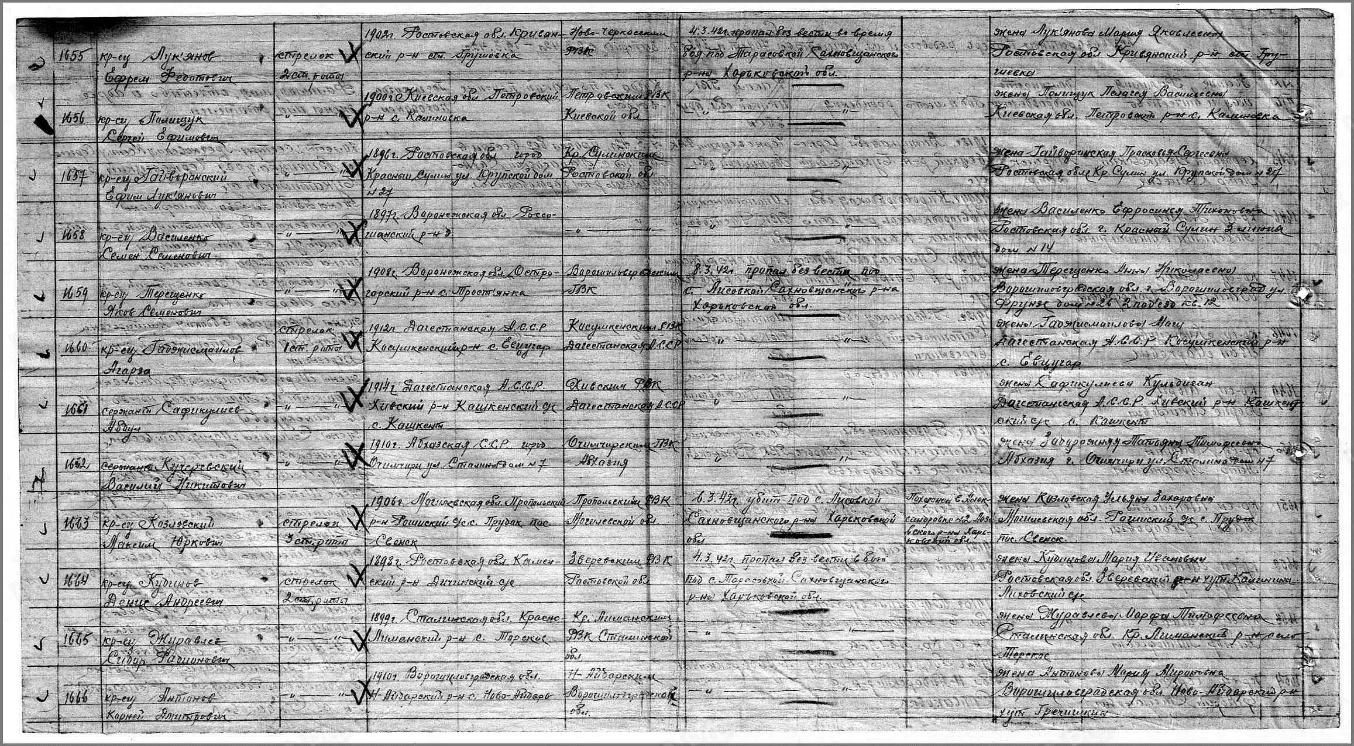 1655 кр-ец Лук'янов Ефрем Федотович
стрелок 2 ст. роты
1902г. Ростовская обл. Кривян-
ский р-н ст. Грушовка
Ново-Черкасским
РВК
4.3.42г. пропал без вести во время
боя под Тарасовкой Сахновщанского
р-на Харьковской обл.
жена Лук'янова Мария Яковлевна
Ростовская обл. Кривянский р-н ст. Гру-
шевка
1656 кр-ец Полищук
Сергей Ефимович
—"—
1900г. Киевская обл. Петровский
р-н с. Калиновка
Петровским РВК
Киевской обл
—"—
жена Полищук Пелагея Васильевна
Киевская обл. Петровский р-н с. Калиновка
1657 кр-ец Гайворонский
Ефим Лук'янович
—"—
1896г. Ростовская обл. город
Красный Сулин ул. Крупской дом
н 27
Кр. Сулинским
Ростовской обл
—"—
жена Гайворонская Прасковья Сергеевна
Ростовская обл. Кр. Сулин ул. Крупской дом н 27
1658 кр-ец Василенко
Семен Семенович
—"—
1897г. Воронежская обл. Россо-
шанский р-н
—"—
—"—
жена Василенко Ефросинья Тихоновна
Ростовская обл. г. Красный Сулин 3 линия
дом н 14
1659 кр-ец Терещенко
Яков Семенович
—"—
1908г. Воронежская обл. Остро-
горский р-н с. Тростянка
Ворошиловградским
ГВК
8.3.42г. пропал без вести под
с. Лисовкой Сахновщанского р-на
Харьковской обл.
жена Терещенко Анна Николаевна
Ворошиловградская обл. г. Ворошиловград ул.
Фрунзе дом н 26 2 под'езд кв. 12
1660 кр-ец Гаджисмаилов
Агарза
стрелок
1 ст. роты
1912г. Дагестанская А.С.С.Р
Косумкенский р-н с. Ецугар
Косумкенским РВК
Дагестанская А.С.С.Р
—"—
жена Гаджисмаилова Магу
Дагестанская А.С.С.Р. Косумкенский р-н
с. Ецугар
1661 сержант Сафикулиев
Абдул
—"—
1914г. Дагестанская А.С.С.Р.
Хивский р-н Кашкенский с/с
с. Кашкент
Хивским РВК
Дагестанская А.С.С.Р
—"—
жена Сафикулиева Кульбизан
Дагестанская А.С.С.Р. Хивский р-н Кашкент-
ский с/с с. Кашкент
1662 сержант Кучеревский
Василий Никитович
—"—
1910г. Абхазская С.С.Р. город
Очимчири ул. Сталина дом н 7
Очимчирским ГВК
Абхазия
—"—
жена Забурдяняя Татьяна Тимофеевна
Абхазия г. Очимчири ул. Сталина дом н 7
1663 кр-ец Козловский
Максим Юркович
стрелок
3 ст. роты
1906г. Могилевская обл. Пропольский
р-н Рагинский с/с с. Прудок пос.
Свенск
Пропольским РВК
Могилевской обл.
6.3.42г. убит под с. Лисовкой
Сахновщанского р-на Харьковской
обл
жена Козловская Ульяна Захаровна
Могилевская обл. Рагинский с/с с. Прудок
пос. Свенск.
1664 кр-ец Кудинов
Денис Андреевич
стрелок
2 ст. роты
1898г. Ростовская обл. Камен-
ский р-н
Зверевским РВК
Ростовской обл
4.3.42г. пропал без вести в бою
под с. Тарасовкой Сахновщанского
р-на Харьковской обл.
жена Кудинова Мария Ивановна
Ростовская обл. Зверевский р-н хут. Калинина
Лиховский с/с
1665 кр-ец Журавлев
Сидор Родионович
—"—
1899г. Сталинская обл. Красно-
Лиманский р-н с. Торское
Кр. Лиманским
РВК Сталинской
обл
—"—
жена Журавлева Марфа Тимофеевна
Сталинская обл. Кр. Лиманский р-н село
Торское
1666 кр-ец Антонов
Корней Дмитрович
—"—
1910г Ворошиловградская обл.
Н-Айдарский р-н с. Ново-Айдары
Н-Айдарским
Ворошиловградской
обл.
—"—
жена Антонова Мария Мироновна
Ворошиловградская обл. Ново-Айдарский р-н
хут Гречишкин